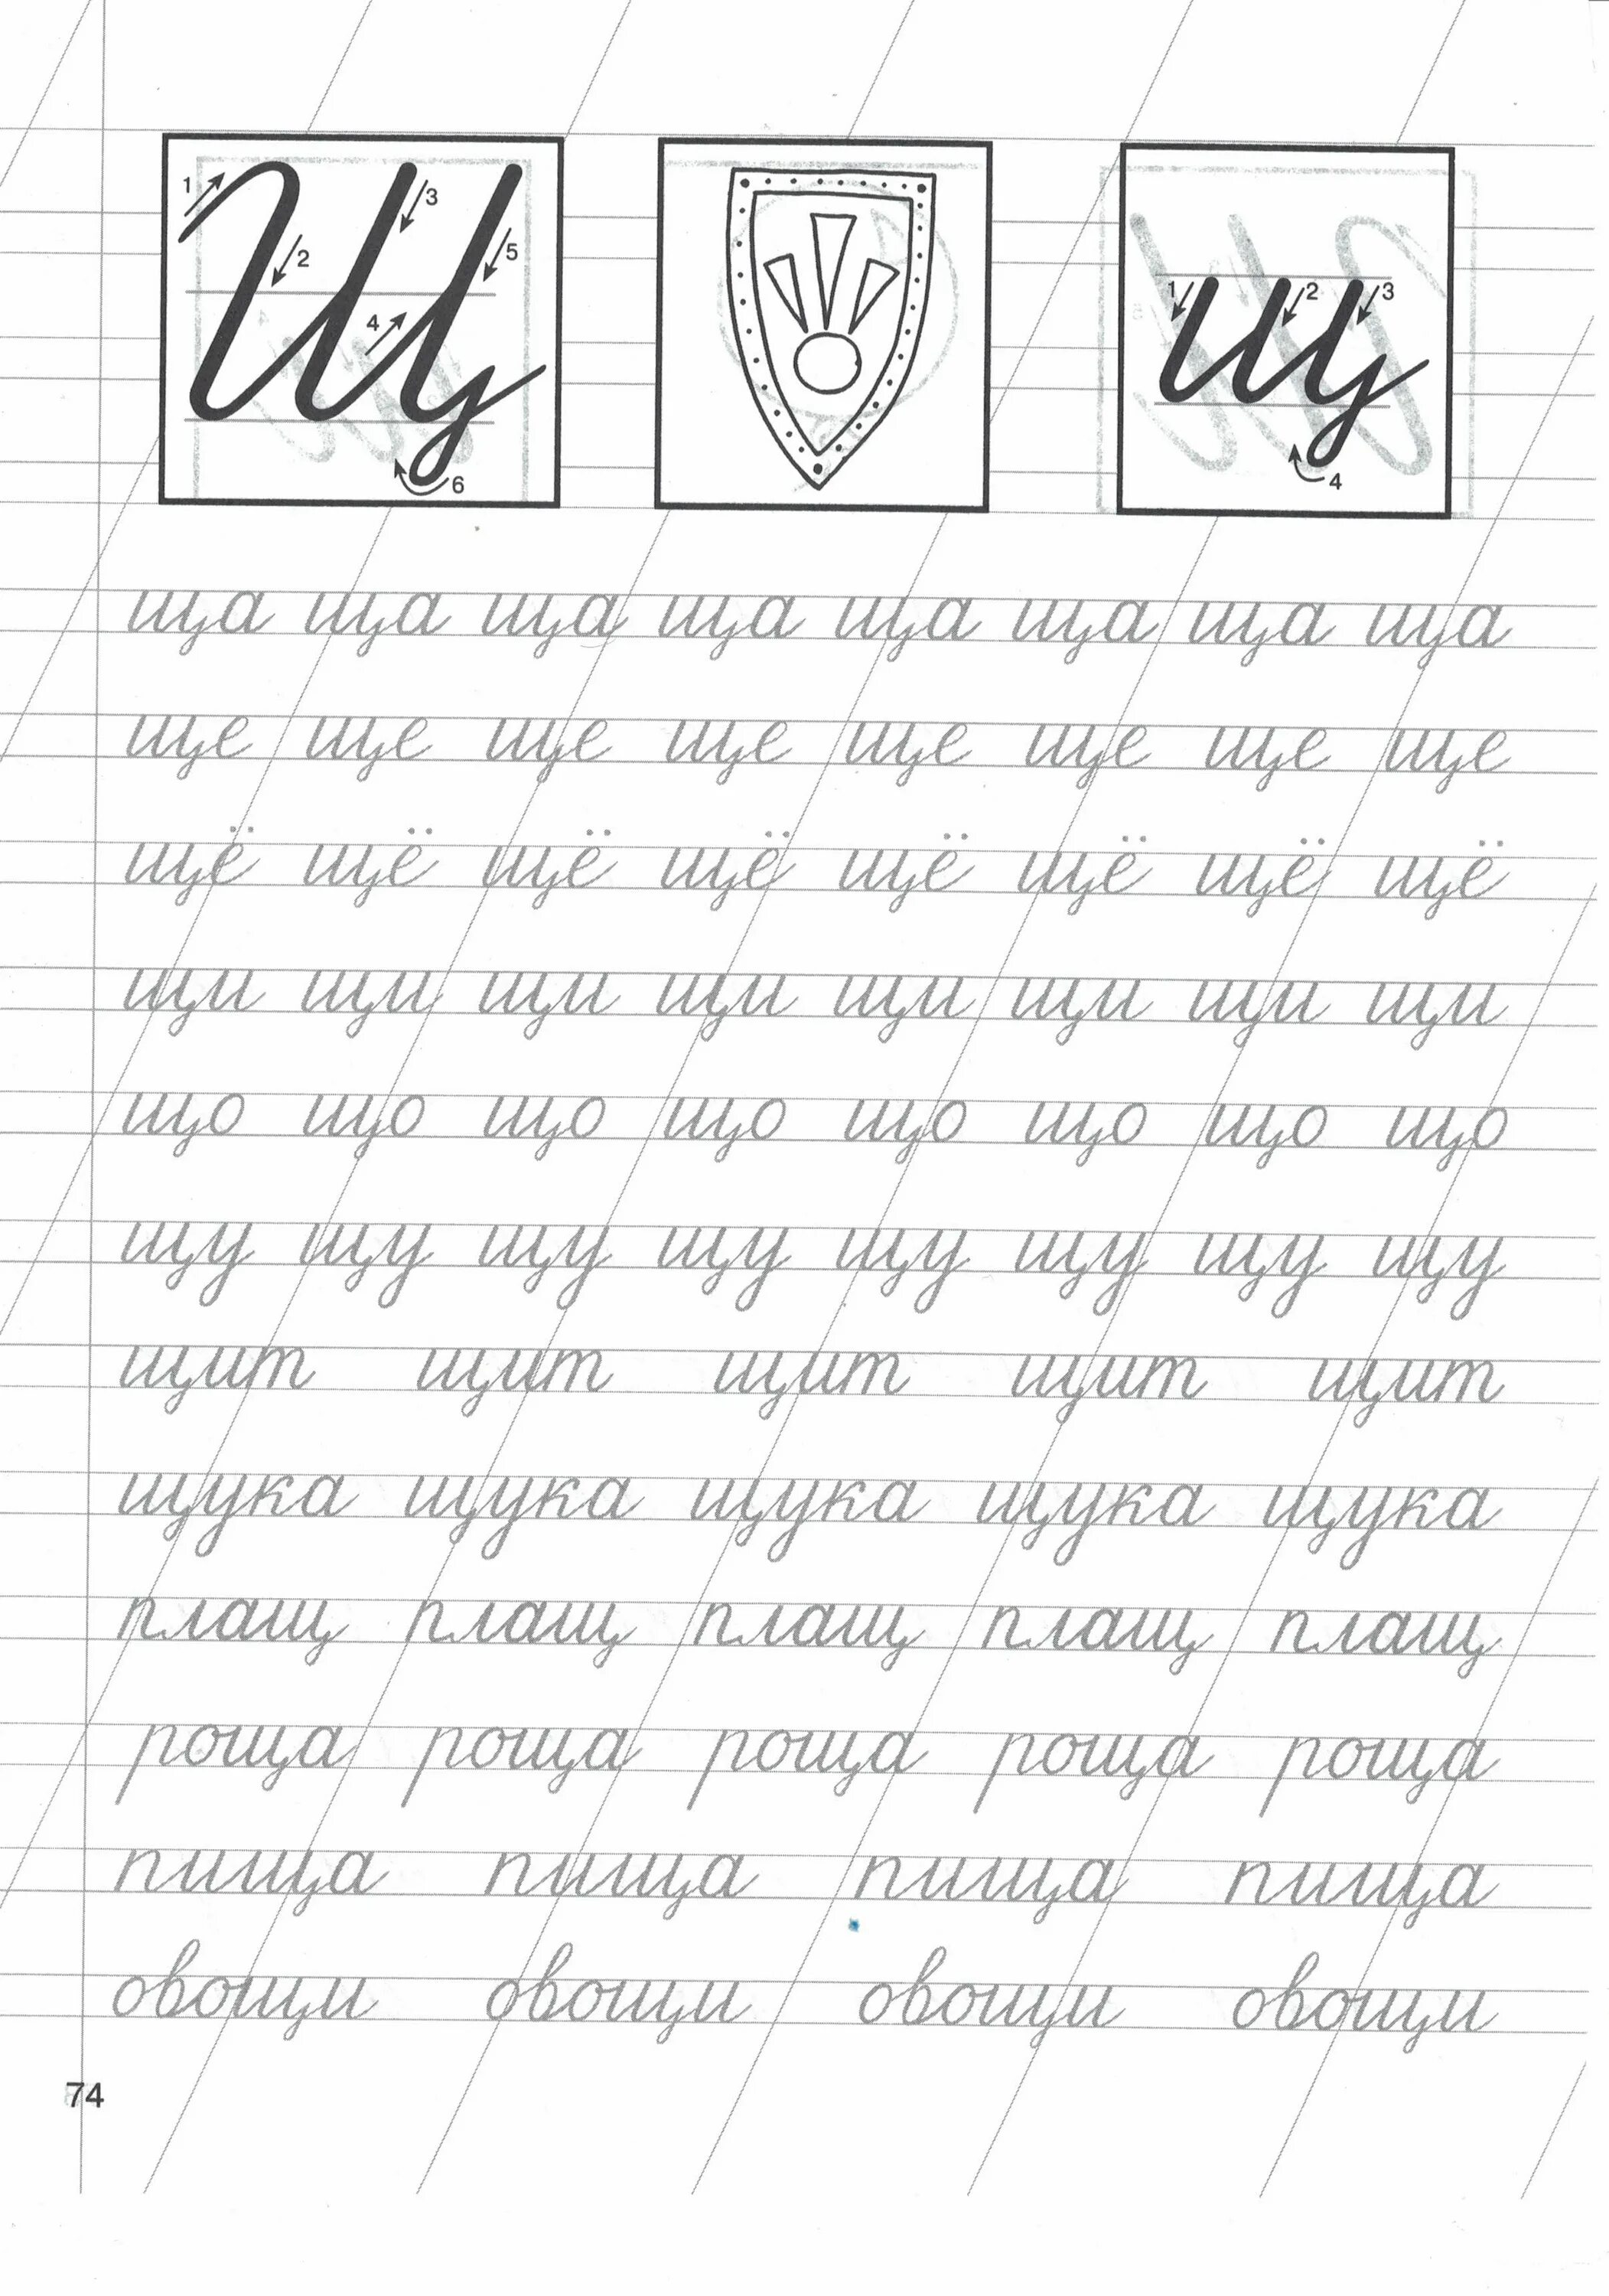 1 2 3 4 5 6 Щ 1 2 3 4 щ
ща ща ща ща ща ща ща ща
ще ще ще ще ще ще ще ще
щё щё щё щё щё щё щё щё
щи щи щи щи щи щи щи щи
що що що що що що що що
щу щу щу щу щу щу щу щу
щит щит щит щит щит
щука щука щука щука щука
плащ плащ плащ плащ плащ
роща роща роща роща роща
пища пища пища пища
овощи овощи овощи овощи
74